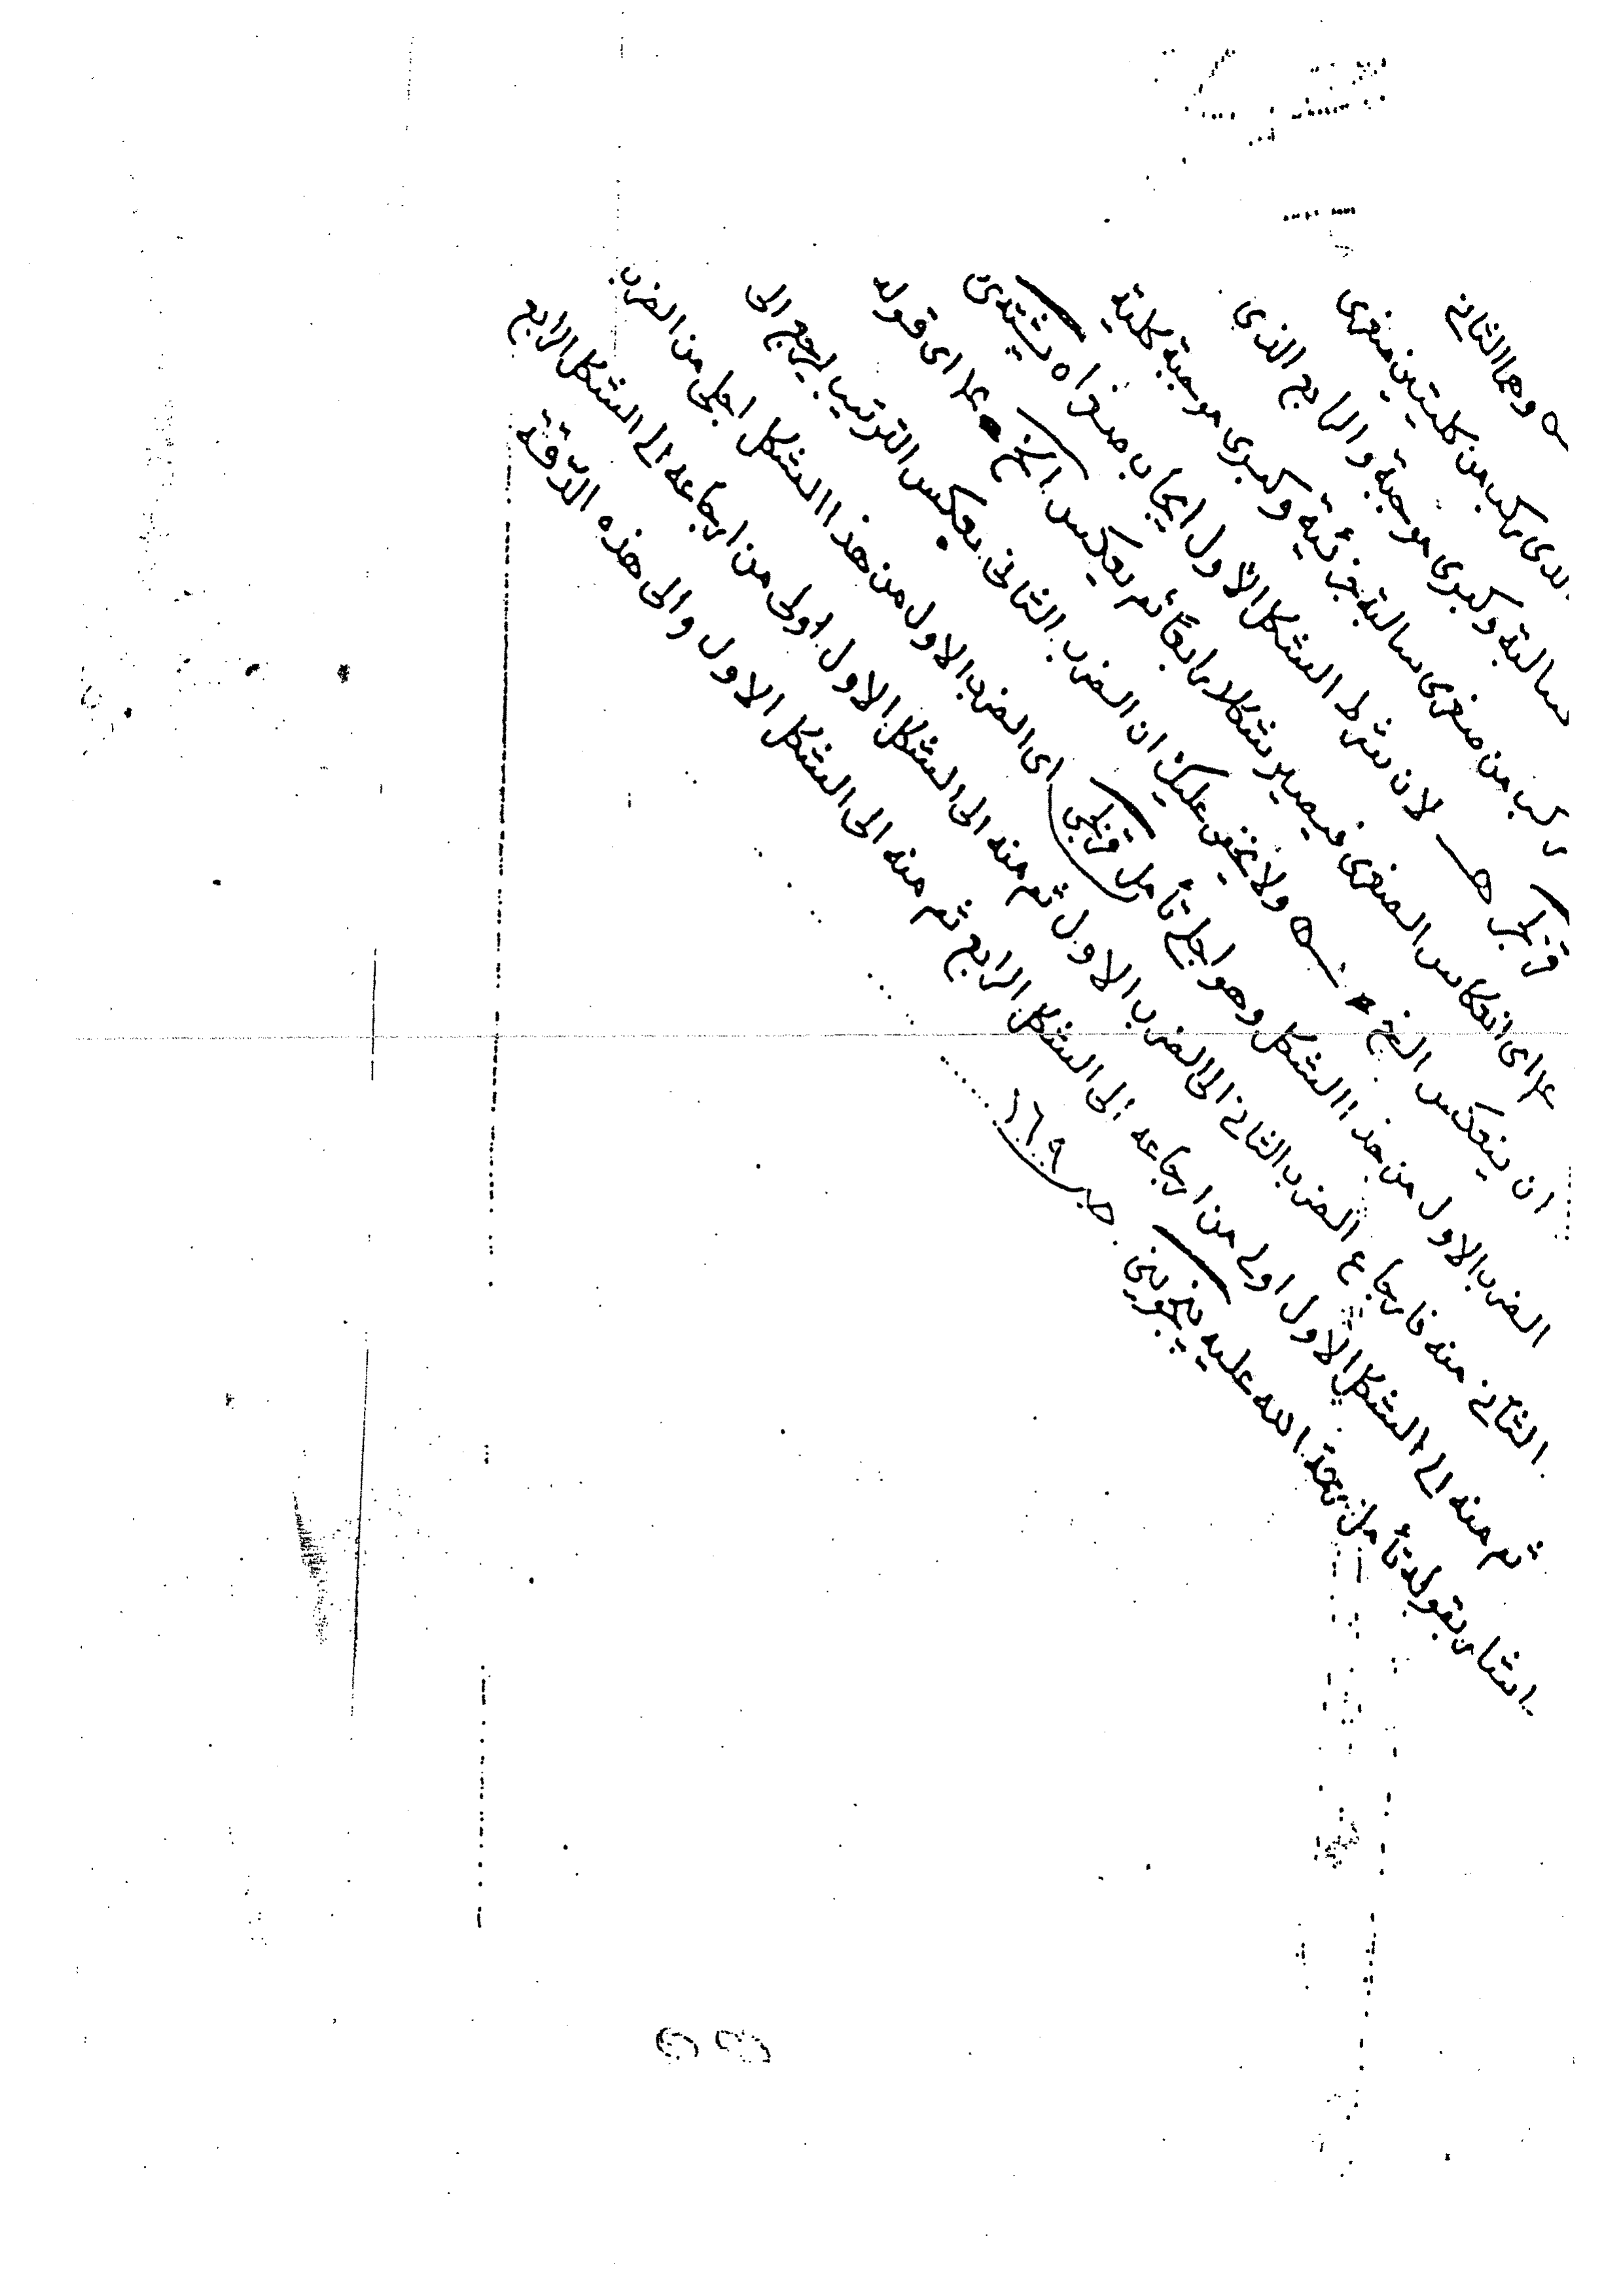 وهما الثاني
الذى يركب من كليتين صغرى
سالبة وكبرى موجبة والرابع الذى
يركب من صغرى سالبة جزئية وكبرى موجبة كلية
قزلجى لان شرط الشكل الأول ايجاب صغراه
اى انعكاس الصغرى فيصير شكلا رابعًا ثم يعكس الخ اى قوله
ان ينعكس الخ ولا يخفى عليك ان الضرب الثانى بعكس الترتيب يرجع الى
الضرب الاول من هذا الشكل وهو اجلى تأمل قزلجى اى الضرب الاول من هذا الشكل اجلى من الضرب
الثاني منه فارجاع الضرب الثاني الى الضرب الاول ثم منه الى الشكل الاول اولى من ارجاعه الى الشكل الرابع
ثم منه الى الشكل الاول اولى من ارجاعه الى الشكل الرابع ثم منه الى الشكل الاول والى هذه الدّقة
اشار بقوله تأمل رحمة الله عليه پنجوينى صـ ١٦٩